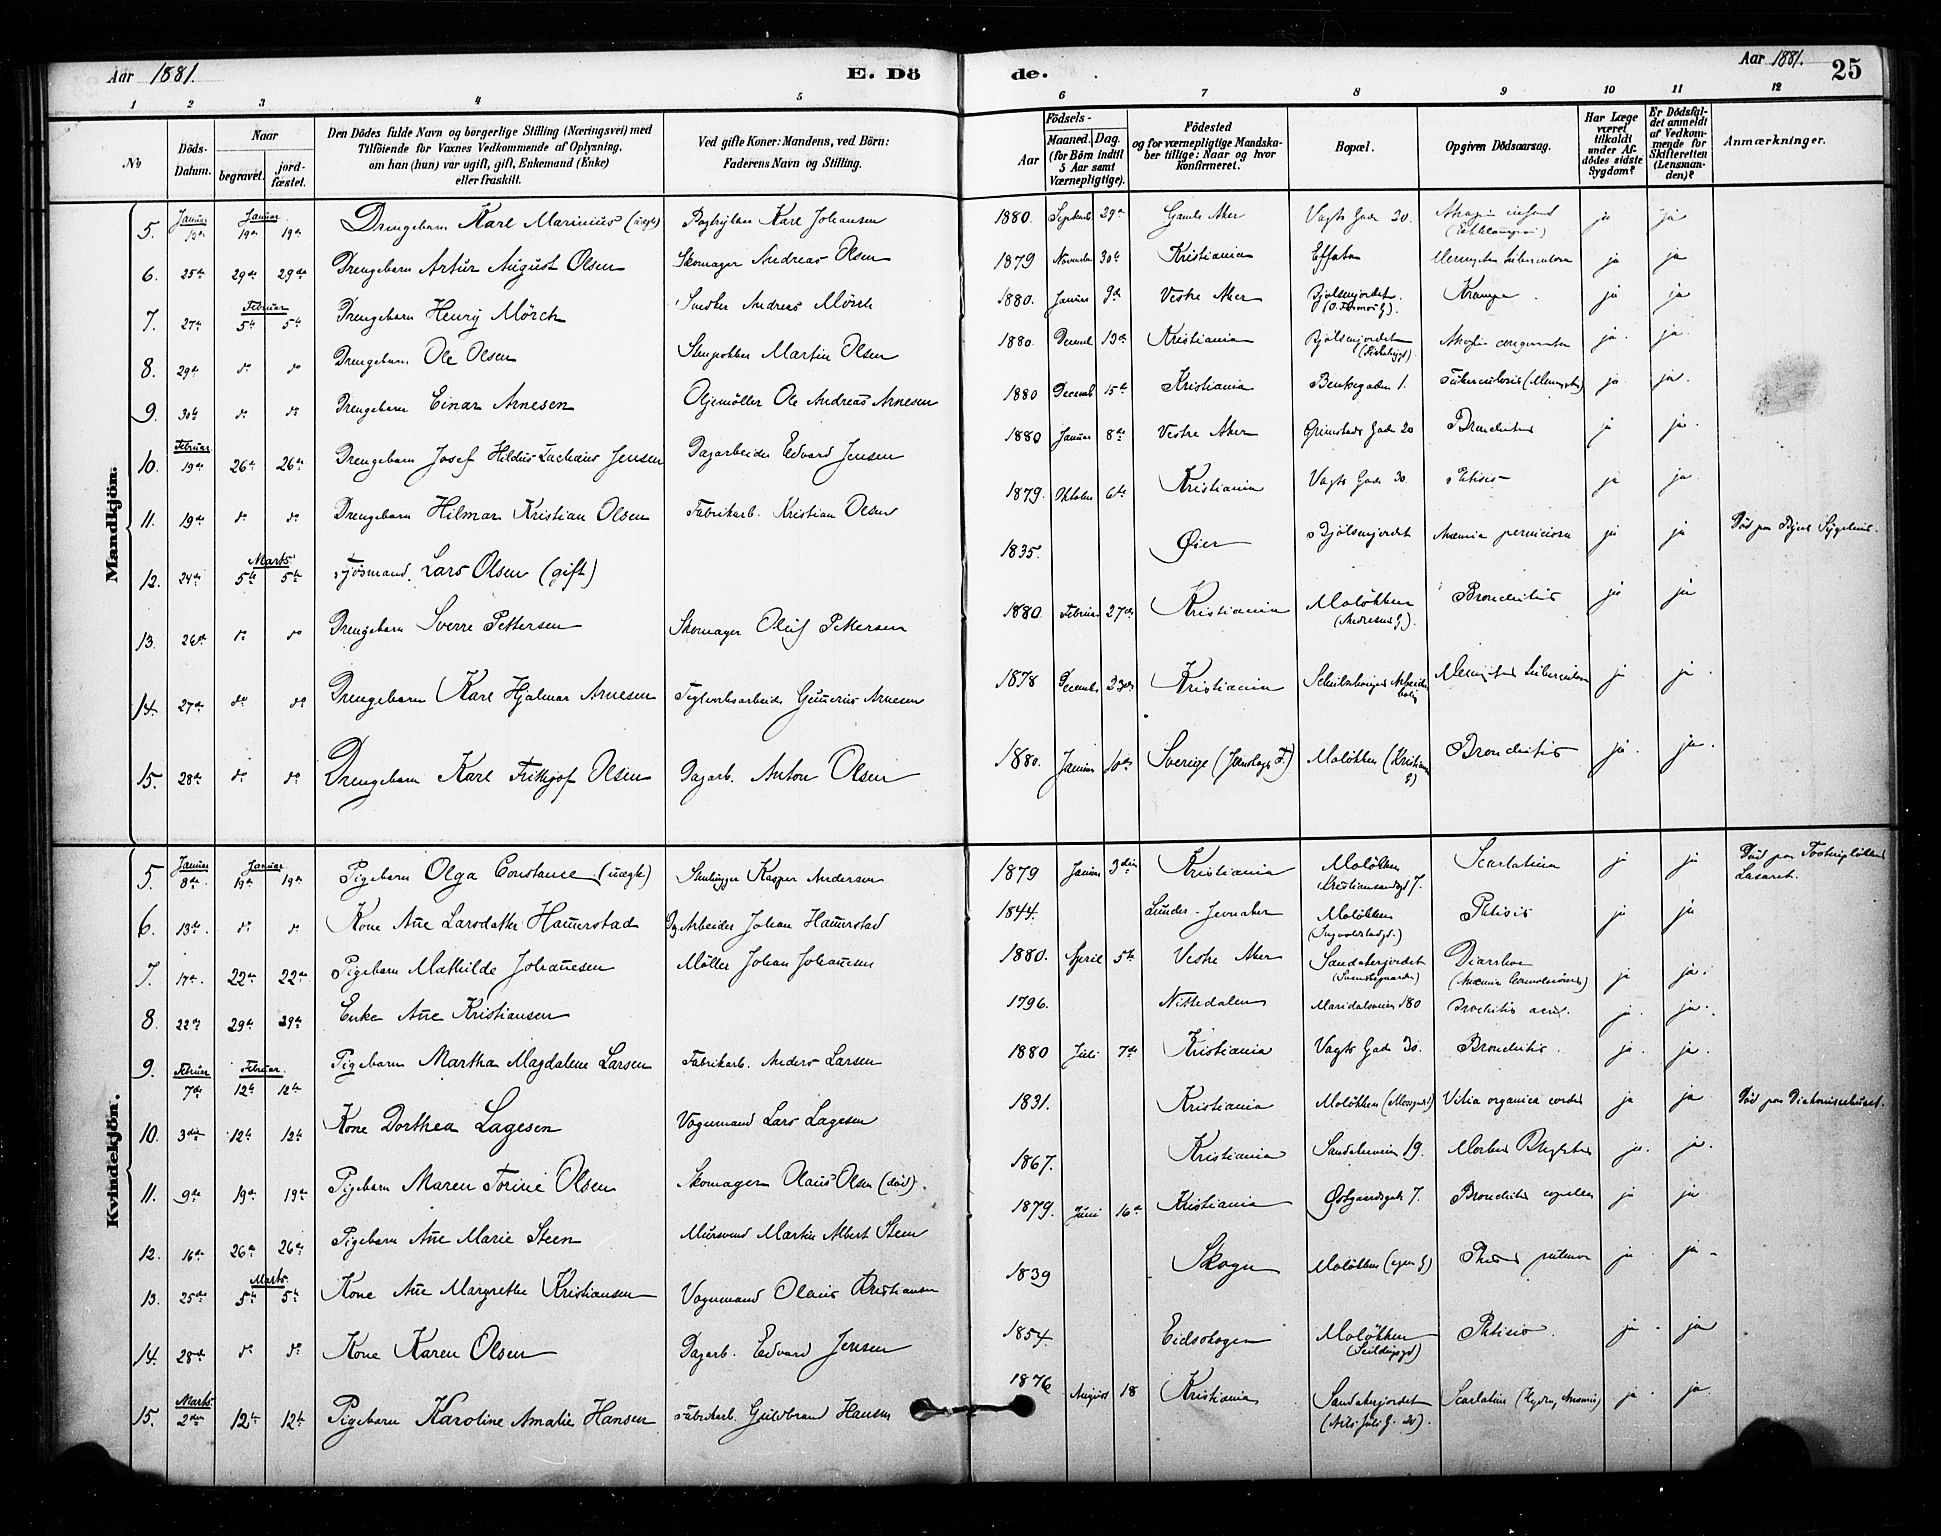 Aar 1881.
E. Dö
de.
Aar 1881.
25
1 2 3 4 5 6 7 8 9 10 11 12
No
Döds-Datum.
Naar
begravet.
jord-fæstet.
Den Dödes fulde Navn og borgerlige Stilling (Næringsvei) med
Tilföiende for Voxnes Vedkommende af Oplysning,
om han (hun) var ugift, gift, Enkemand (Enke)
eller fraskilt.
Ved gifte Koner: Mandens, ved Börn:
Faderens Navn og Stilling.
Födsels-
Aar
Maaned. Dag.
(for Börn indtil
5 Aar samt
Værnepligtige).
Födested
og for værnepligtige Mandska-
ber tillige: Naar og hvor
konfirmeret.
Bopæl.
Opgiven Dödsaarsag.
Har Læge
været
tilkaldt
under Af-
dödes sidste
Sygdom?
Er Dödsfal-
det anmeldt
af Vedkom-
mende for
Skifteretten
(Lensman-
den)?
Anmærkninger.
Mandkjön.
5. Januar 19de Januar 19de Drengebarn Karl Marinius (uægte) Karl Johansen 1880. Septemb 29de Gamle Aker Vagts Gade 20. ja ja
6. 25de 29de 29de Drengebarn Artur August Olsen Skomager Andreas Olsen 1879 November 30te Kristiania Effata ja ja
7. 27de Februar 5te 5te Drengebarn Henry Mörch Snedker Andreas Mörch 1880. Januar 9de Vestre Aker Bjölsenjordet Krampe ja ja
8. 29de do do Drengebarn Ole Olsen Martin Olsen 1880. Decemb 13de Kristiania Bjölsenjordet ja ja
9. 30te do do Drengebarn Einar Arnesen Oljemöller Ole Andreas Arnesen 1880 Decemb 15de Kristiania Benkegaden 1. Tuberculosis ja ja
10. Februar 19de 26de 26de Drengebarn Josef Hildus Zachæus Jensen Dagarbeider Edvard Jensen 1880 Januar 8de Vestre Aker Grimstads Gade 20 Bronchitis ja ja
11. 19de do do Drengebarn Hilmar Kristian Olsen Fabrikarb. Kristian Olsen 1879. Oktober 6te Kristiania Vagts Gade 30. Phtisis ja ja
12. 24de Marts 5te 5te Sjösmand Lars Olsen (gift) 1835. Øier Bjölsenjordet Anæmia perniciosa ja ja Död paa Byens Sygehus.
13. 26de do do Drengebarn Sverre Pettersen Skomager Oluf Pettersen 1880 Februar 27de Kristiania Molökken Bronchitis ja ja
14. 27de do do Drengebarn Karl Hjalmar Arnesen Teglverksarbeider Gunerius Arnesen 1878 Decemb 23de Kristiania ja ja
15. 28de do do Drengebarn Karl Frithjof Olsen Dagarb. Anton Olsen 1880. Januar 10de Sverige Molökken Bronchitis ja ja
Kvindekjön.
5. Januar 8de Januar 19de 19de Pigebarn Olga Constance (uægte) Stenhugger Kasper Andersen 1879 Januar 3die Kristiania Molökken Kristiansandsgd 7. Scarlatina ja ja Död paa Lasaret.
6. 13de do do Kone Ane Larsdatter Hamerstad Arbeider Johan Hamerstad 1844. Lunder - Jevnaker Molökken Phtisis ja ja
7. 17de 22de 22de Pigebarn Mathilde Johanesen Möller Johan Johanesen 1880. April 5te Vestre Aker Sandakerjordet Diarrhoe ja ja
8. 22de 29de 29de Enke Ane Kristiansen 1796. Nittedalen Maridalsveien 180 ja ja
9. Februar 7de Februar 12te 12te Pigebarn Martha Magdalene Larsen Fabrikarb. Anders Larsen 1880 Juli 7de Kristiania Vagts Gade 30. Bronchitis. ja ja
10. 3die 12te 12te Kone Dorthea Lagesen Vognmand Lars Lagesen 1831. Kristiania Molökken Vitia organica cordis ja ja Död paa Diakonissehuset.
11. 9de 19de 19de Pigebarn Maren Torine Olsen Skomager Olaus Olsen (död). 1867. Kristiania Sandakerveien 19. ja ja
12. 16de 26de 26de Pigebarn Ane Marie Steen Mursvend Martin Albert Steen 1879. Juni 16de Kristiania Østgaardsgade 7. Bronchitis ja ja
13. 25de Marts 5te 5te Kone Ane Margrethe Kristiansen Vognmand Olaus Kristiansen 1839 Skogn Molökken (egen G) ja ja
14. 28de do do Kone Karen Olsen Dagarb. Edvard Jensen 1854. Eidskogen Molökken Phtisis. ja ja
15. Marts 2den 12te 12te Pigebarn Karoline Amalie Hansen Fabrikarb. Guldbrand Hansen 1876 August 18 Kristiania Sandakerjordet Scarlatina ja ja